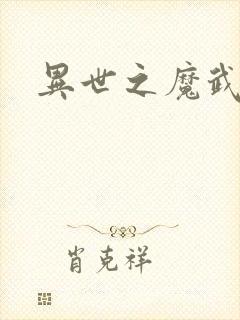 異世之魔武
肖克祥